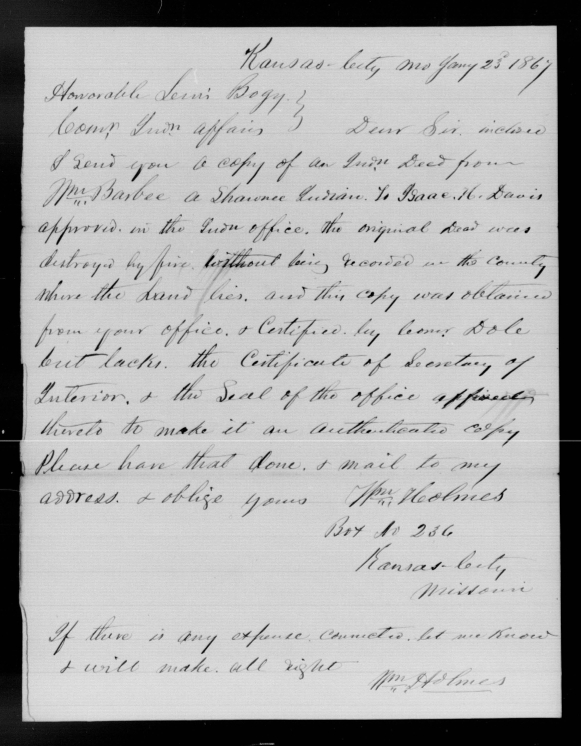 Kansas-City Mo Jany 23d 1867
Honorable Lewis Bogy. }
Comr Indn affairs } Dear Sir. inclosed
I send you a copy of an Indn Deed from
Wm Barbee a Shawnee Indian. To Isaac. H. Davis
approved. in the Indn office. the original Deed was
destroyd by fire. without being recorded in the county
where the Land lies. and this copy was obtained
from your office. & Certified. by Comr. Dole
but lacks. the Certificate of Secretary of
Interior. & the Seal of the office affixed
thereto to make it an authenticated copy
Please have that done. & mail to my
address. & oblige yours Wm Holmes
Box No 236
Kansas-City
Missouri
If there is any expense. connected. let me Know
& will make. all right
Wm Holmes